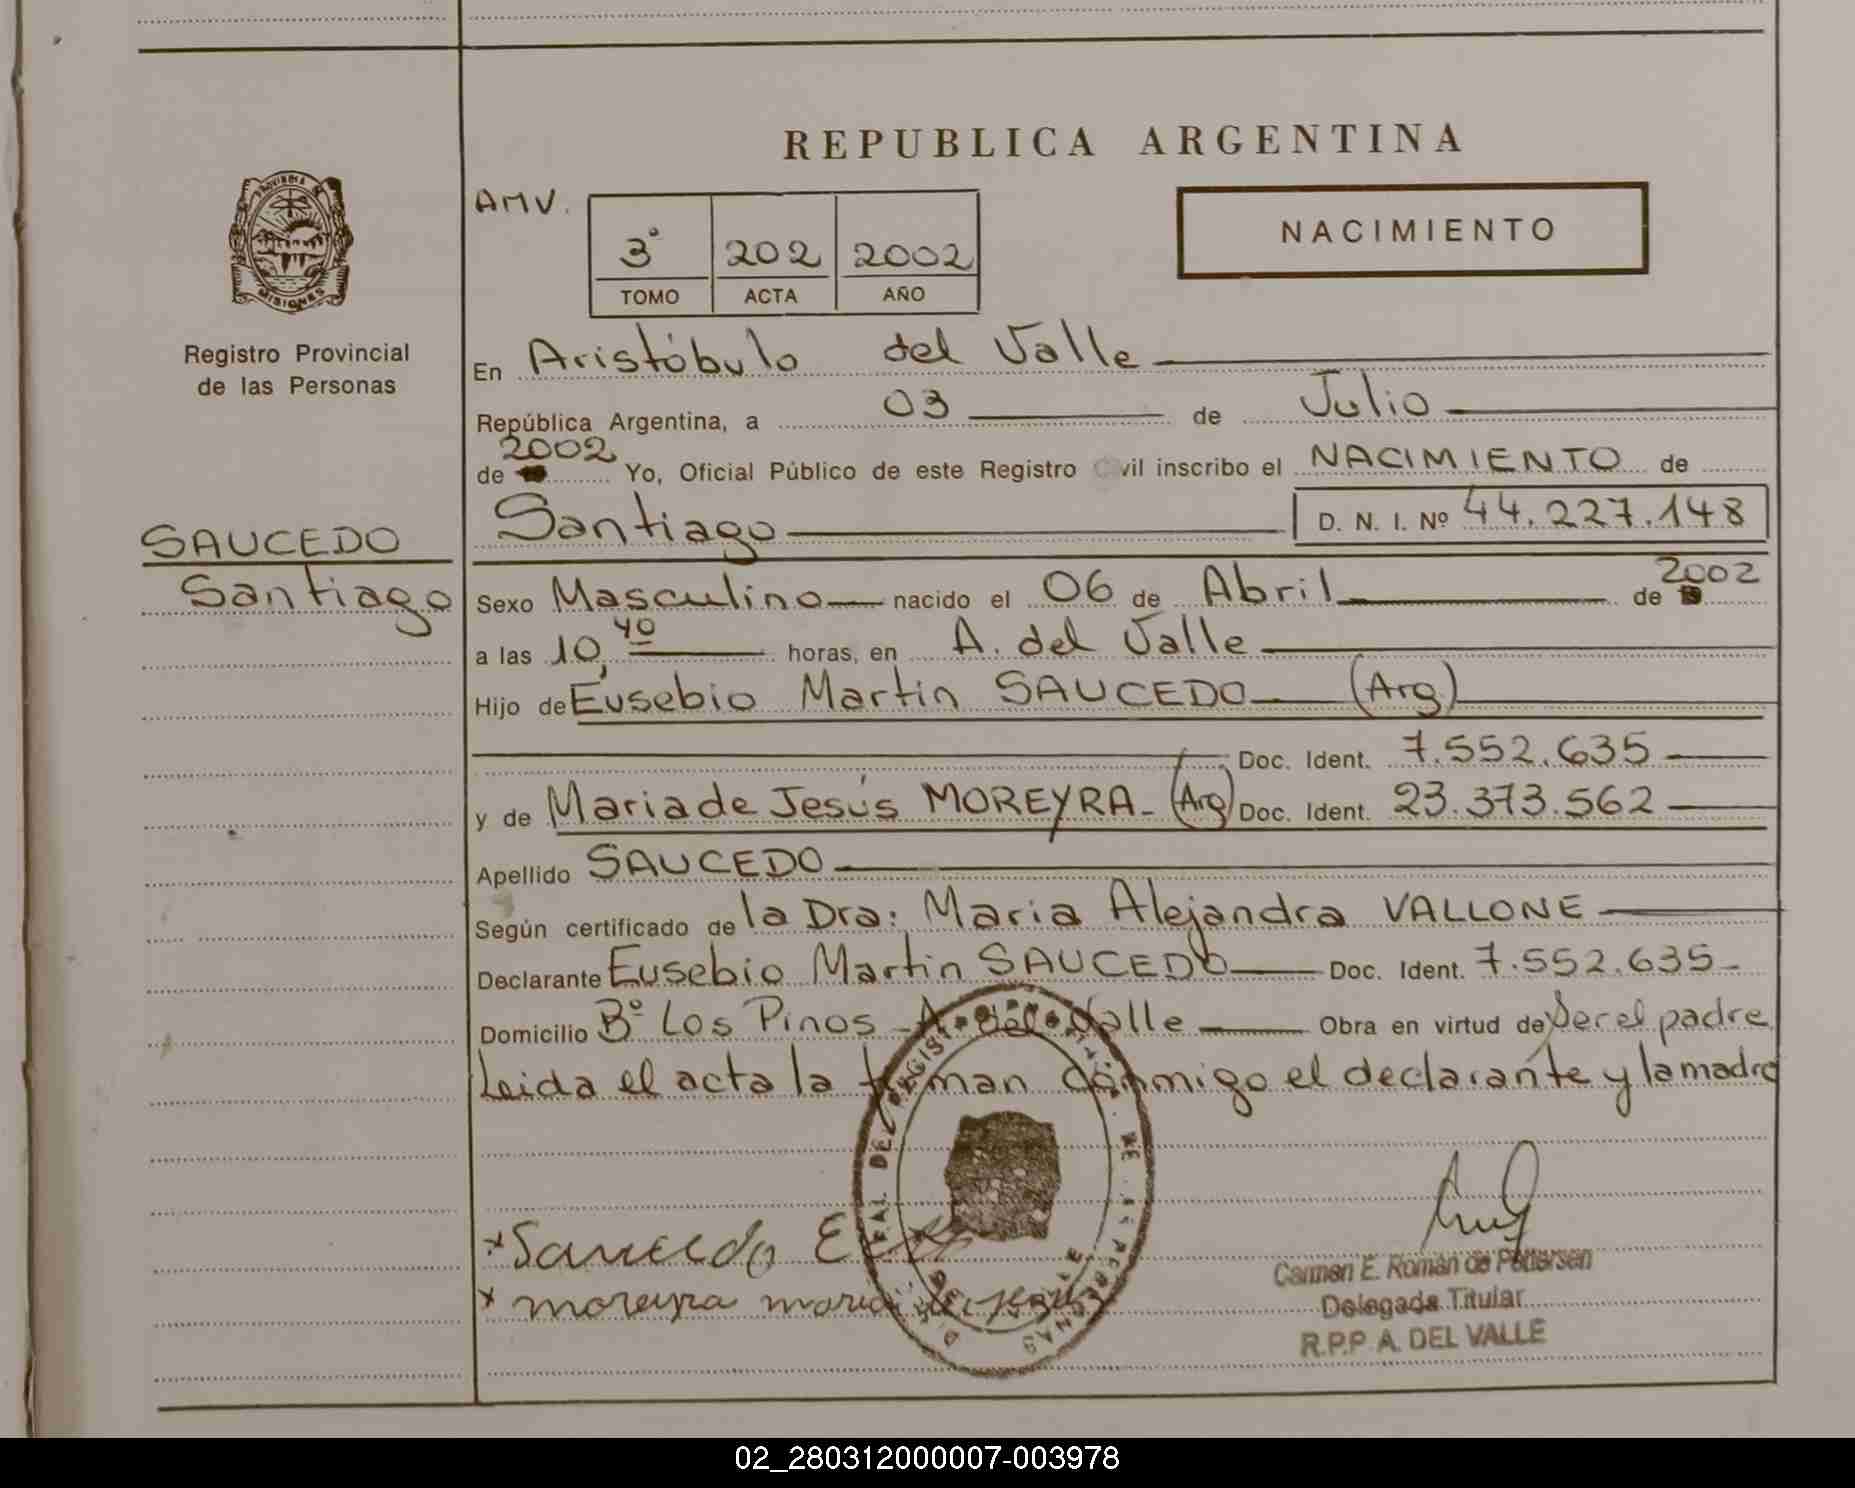 REPUBLICA ARGENTINA
PROVINCIA DE
MISIONES
Registro Provincial
de las Personas
AMV.
3° 202 2002
TOMO ACTA AÑO
NACIMIENTO
En Aristóbulo del Valle
República Argentina, a 03 de Julio
de 2002 Yo, Oficial Público de este Registro Civil inscribo el NACIMIENTO de
Santiago D. N. I. Nº 44.227.148
SAUCEDO
Santiago
Sexo Masculino nacido el 06 de Abril de 2002
a las 10,40 horas, en A. del Valle
Hijo de Eusebio Martin SAUCEDO (Arg)
Doc. Ident. 7.552.635
y de Maria de Jesús MOREYRA- (Arg) Doc. Ident. 23.373.562
Apellido SAUCEDO
Según certificado de la Dra: Maria Alejandra VALLONE
Declarante Eusebio Martin SAUCEDO Doc. Ident. 7.552.635-
Domicilio Bº Los Pinos - A. del Valle Obra en virtud de Ser el padre
Leida el acta la firman conmigo el declarante y la madre
x Saucedo E
x moreyra maria de jesus
Carmen E. Román de Pettersen
Delegada Titular
R.P.P. A. DEL VALLE
02_280312000007-003978